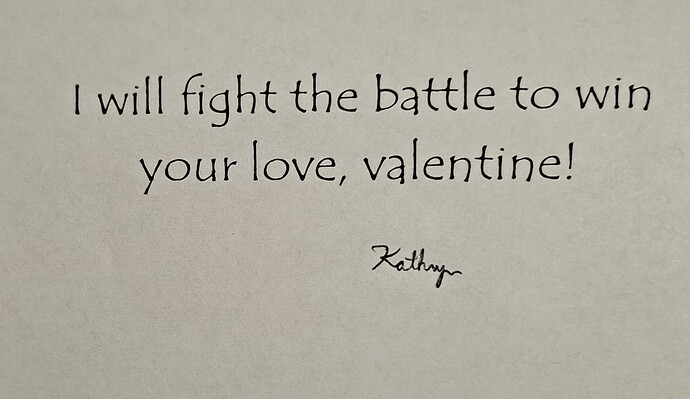 I will fight the battle to win
your love, valentine!
Kathryn